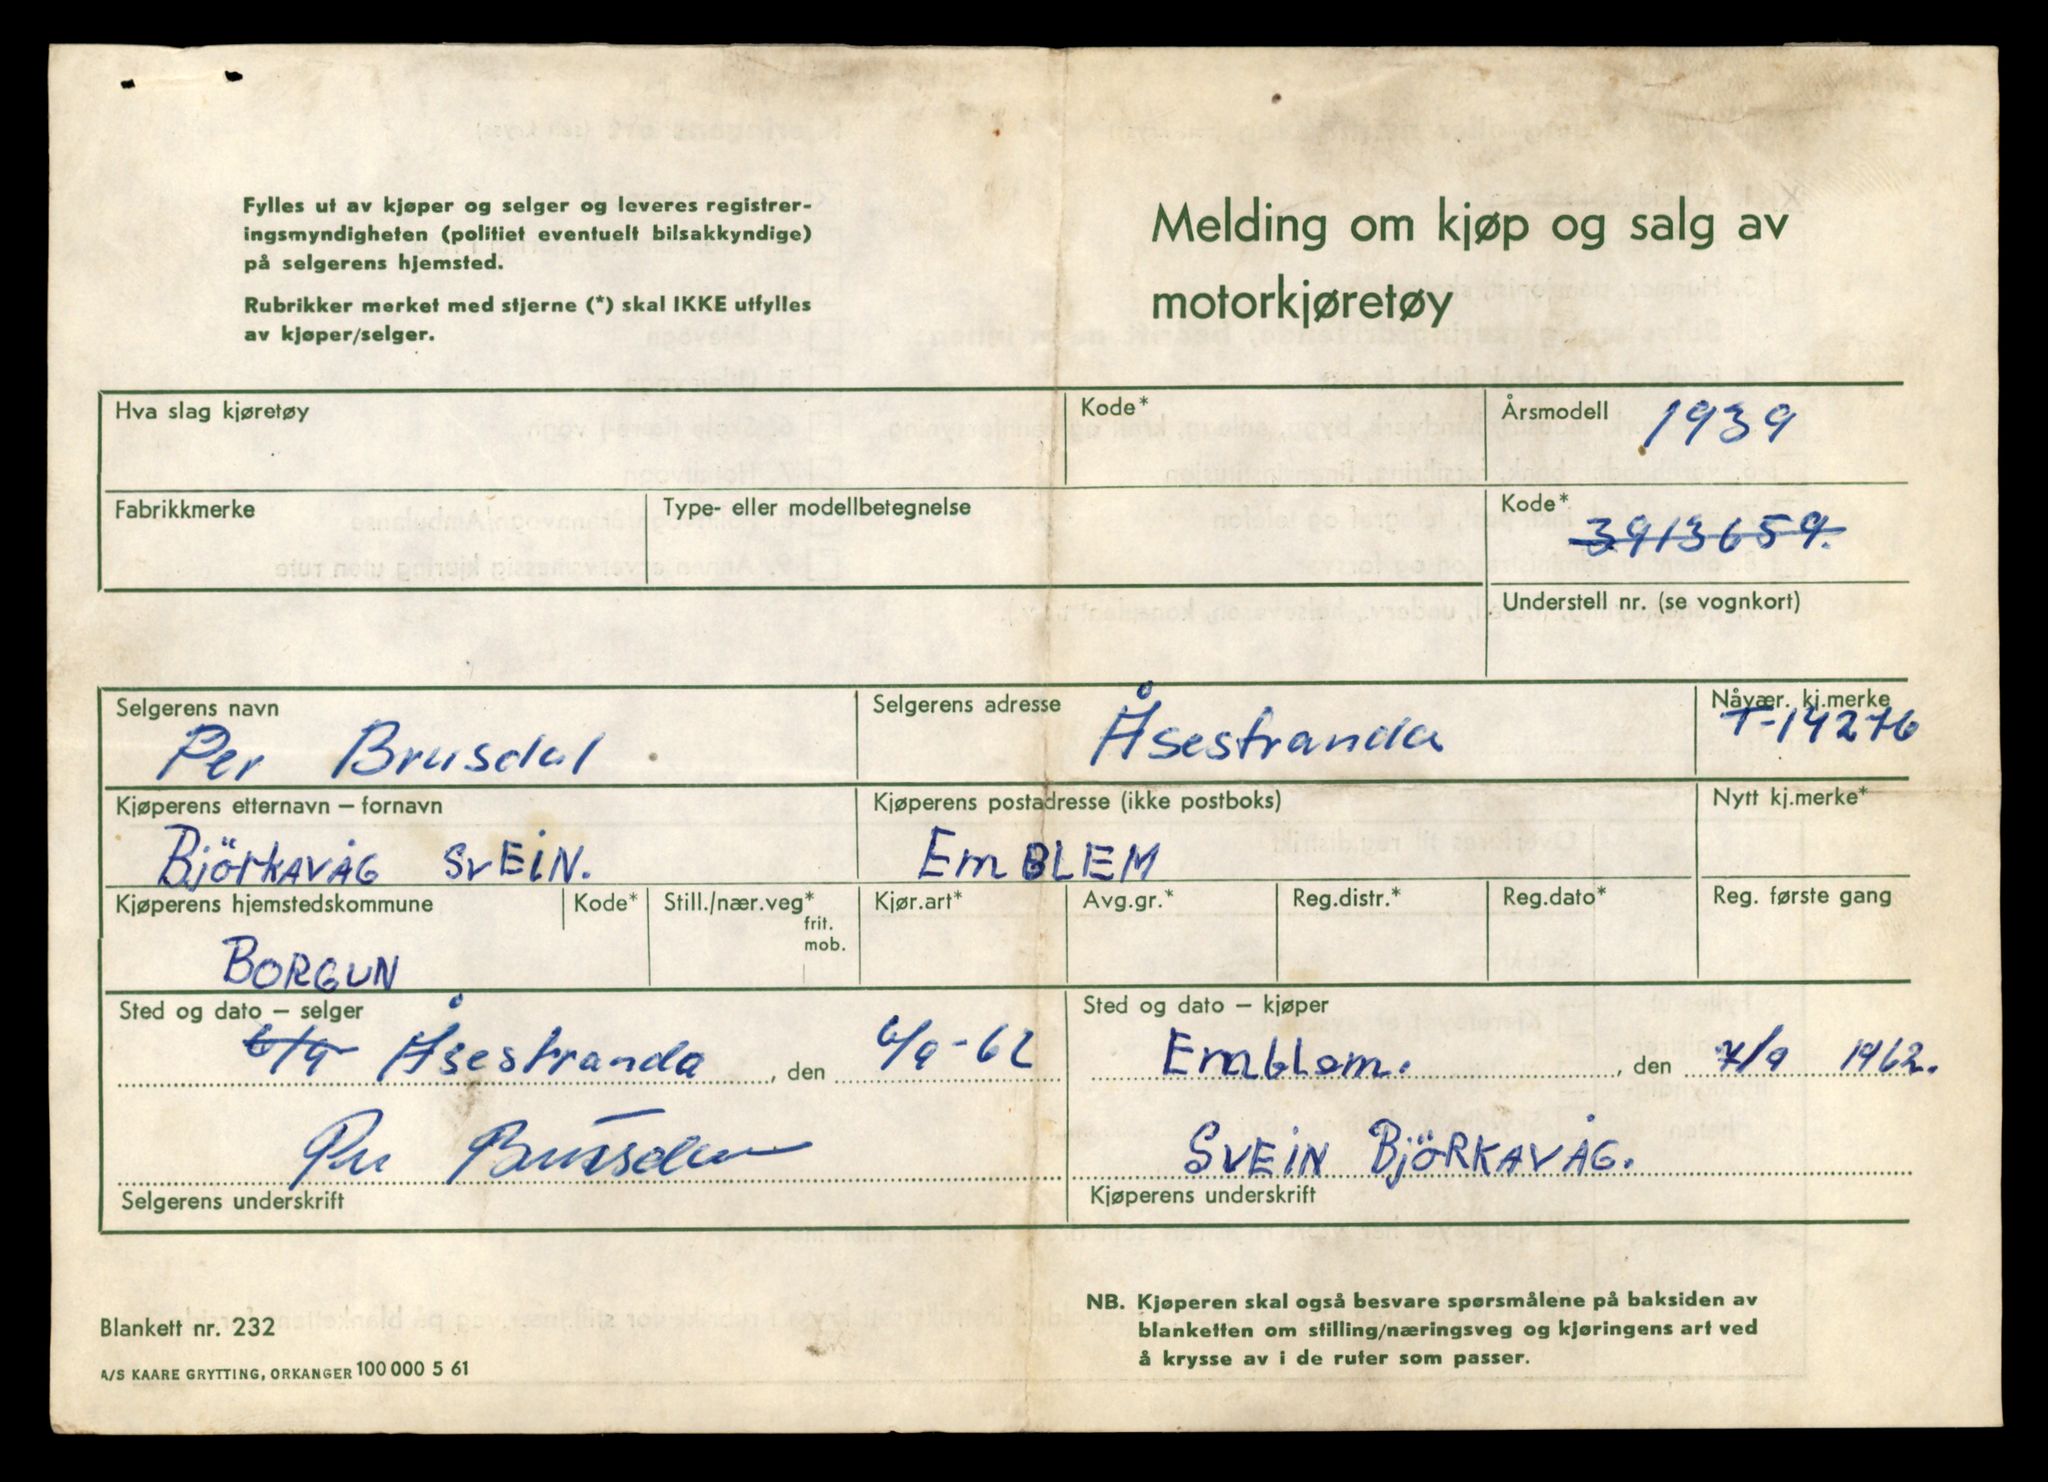 Fylles ut av kjøper og selger og leveres registrer-
ingsmyndigheten (politiet eventuelt bilsakkyndige)
på selgerens hjemsted.
Rubrikker merket med stjerne (*) skal IKKE utfylles
av kjøper/selger.
Melding om kjøp og salg av
motorkjøretøy
Hva slag kjøretøy
Kode*
Årsmodell 1939
Fabrikkmerke
Type- eller modellbetegnelse
Kode*
3913659.
Understell nr. (se vognkort)
Selgerens navn
Per Brusdal
Selgerens adresse
Åsestranda
Nåvær. kj.merke
T-14276
Kjøperens etternavn – fornavn
BJÖRKAVÅG SVEIN.
Kjøperens postadresse (ikke postboks)
EMBLEM
Nytt kj.merke*
Kjøperens hjemstedskommune
BORGUN
Kode*
Still./nær.veg*
frit.
mob.
Kjør.art*
Avg.gr.*
Reg.distr.*
Reg.dato*
Reg. første gang
Sted og dato – selger
6/9 Åsestranda, den 6/9-62
Per Brusdal
Selgerens underskrift
Sted og dato – kjøper
Emblem., den 7/9 1962.
SVEIN BJÖRKAVÅG.
Kjøperens underskrift
Blankett nr. 232
A/S KAARE GRYTTING, ORKANGER 100 000 5 61
NB. Kjøperen skal også besvare spørsmålene på baksiden av
blanketten om stilling/næringsveg og kjøringens art ved
å krysse av i de ruter som passer.